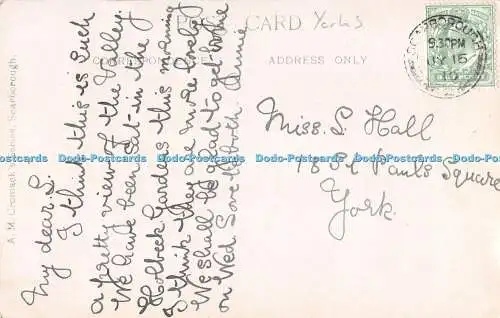 POST CARD Yorks
CORRESPONDENCE
ADDRESS ONLY
SCARBOROUGH
9.30PM
15
My dear S.
I think this is such
a pretty view of the Valley.
We have been sat in the
Holbeck Gardens this morning
I think they are more lovely
We shall be glad to get home
on Wed. Love to both. Annie
Miss. S. Hall
18 St Paul's Square
York.
A. M. Scarborough.
Dodo-Postcards Dodo-Postcards Dodo-Postcards Dodo-Postcards Dodo-Postcards